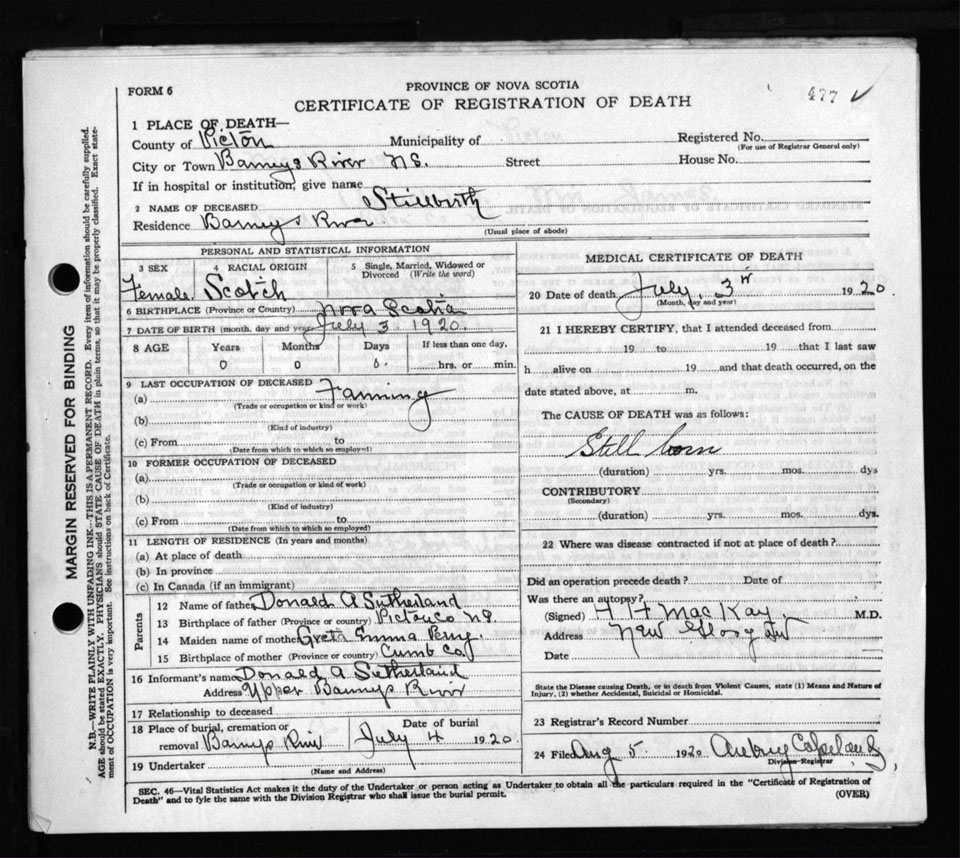 PROVINCE OF NOVA SCOTIA
FORM 6
CERTIFICATE OF REGISTRATION OF DEATH
477 ✓
1 PLACE OF DEATH—
County of Pictou Municipality of Registered No.
(For use of Registrar General only)
City or Town Barneys River N.S. Street House No.
If in hospital or institution, give name
2 NAME OF DECEASED Stillbirth
Residence Barneys River
(Usual place of abode)
PERSONAL AND STATISTICAL INFORMATION
3 SEX 4 RACIAL ORIGIN 5 Single, Married, Widowed or Divorced (Write the word)
Female. Scotch
6 BIRTHPLACE (Province or Country) Nova Scotia
7 DATE OF BIRTH (month, day and year) July 3 1920.
8 AGE Years Months Days If less than one day,
0 0 0. hrs. or min.
9 LAST OCCUPATION OF DECEASED
(a) Farming
(Trade or occupation or kind or work)
(b)
(Kind of industry)
(c) From to
(Date from which to which so employed)
10 FORMER OCCUPATION OF DECEASED
(a)
(Trade or occupation or kind of work)
(b)
(Kind of industry)
(c) From to
(Date from which to which so employed)
11 LENGTH OF RESIDENCE (In years and months)
(a) At place of death
(b) In province
(c) In Canada (if an immigrant)
Parents
12 Name of father Donald A Sutherland
13 Birthplace of father (Province or country) Pictou Co N.S.
14 Maiden name of mother Greta Emma Perry.
15 Birthplace of mother (Province or country) Cumb Co.
16 Informant's name Donald A Sutherland
Address Upper Barneys River
17 Relationship to deceased
18 Place of burial, cremation or removal Barneys River Date of burial July 4 1920.
19 Undertaker
(Name and Address)
MEDICAL CERTIFICATE OF DEATH
20 Date of death July, 3rd 1920.
(Month, day and year)
21 I HEREBY CERTIFY, that I attended deceased from
19 to 19 that I last saw
h alive on 19 and that death occurred, on the
date stated above, at m.
The CAUSE OF DEATH was as follows:
Still born
(duration) yrs. mos. dys
CONTRIBUTORY
(Secondary)
(duration) yrs. mos. dys.
22 Where was disease contracted if not at place of death?
Did an operation precede death? Date of
Was there an autopsy?
(Signed) H H MacKay M.D.
Address New Glasgow
Date
State the Disease causing Death, or in death from Violent Causes, state (1) Means and Nature of
Injury, (2) whether Accidental, Suicidal or Homicidal.
23 Registrar's Record Number
24 Filed Aug 5. 1920 Aubrey Copeland
Division Registrar
SEC. 46—Vital Statistics Act makes it the duty of the Undertaker or person acting as Undertaker to obtain all the particulars required in the "Certificate of Registration of
Death" and to fyle the same with the Division Registrar who shall issue the burial permit.
(OVER)
MARGIN RESERVED FOR BINDING
N.B.—WRITE PLAINLY WITH UNFADING INK—THIS IS A PERMANENT RECORD. Every item of information should be carefully supplied.
AGE should be stated EXACTLY. PHYSICIANS should STATE CAUSE OF DEATH in plain terms, so that it may be properly classified. Exact state-
ment of OCCUPATION is very important. See instructions on back of Certificate.